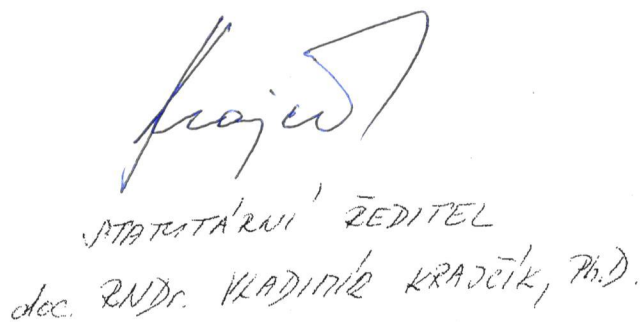 Krajčík
STATUTÁRNÍ ŘEDITEL
doc. RNDr. VLADIMÍR KRAJČÍK, Ph.D.